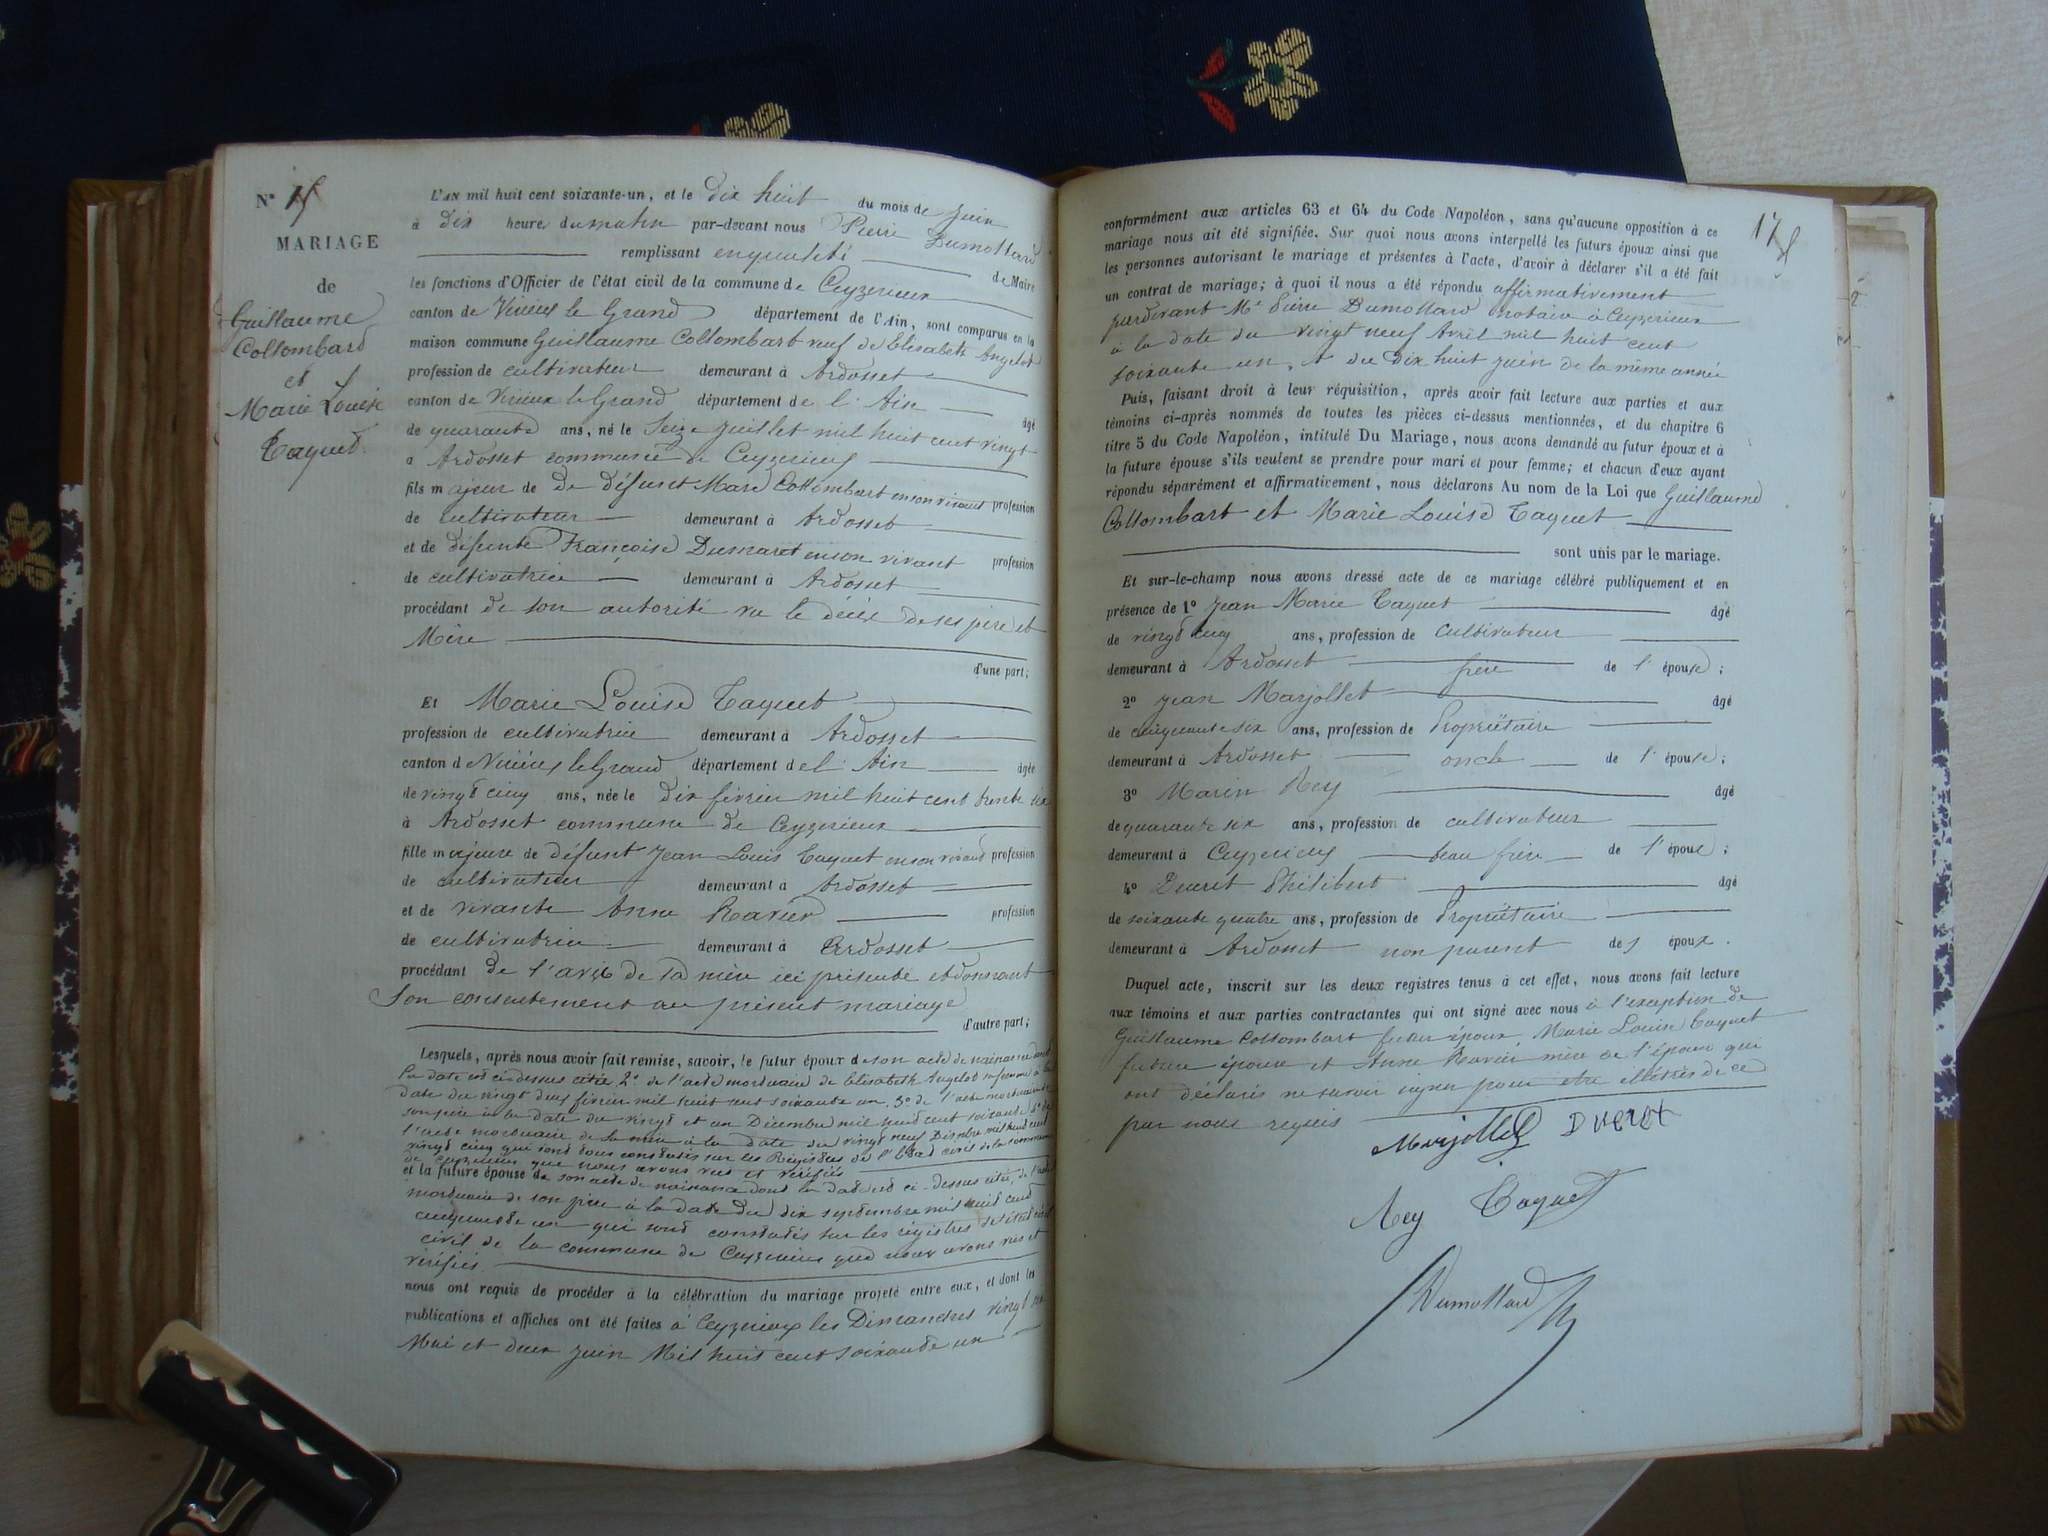 N° 15
MARIAGE
de
Guillaume
Collombard
et
Marie Louise
Taquet
L'AN mil huit cent soixante-un, et le dix huit du mois de juin
à dix heure du matin par-devant nous Pierre Dumollard
remplissant en qualité de Maire
les fonctions d'Officier de l'état civil de la commune de Ceyzerieux
canton de Virieux le Grand département de l'Ain, sont comparus en la
maison commune Guillaume Collombart veuf de Elisabeth Angelot
profession de cultivateur demeurant à Ardosset
canton de Virieux le Grand département de l'Ain âgé
de quarante ans, né le Seize juillet mil huit cent vingt
a Ardosset commune de Ceyzerieux
fils majeur de De défunt Marc Collombart en son vivant profession
de cultivateur demeurant à Ardosset
et de défunte Françoise Dumaret en son vivant profession
de cultivatrice demeurant à Ardosset
procédant de son autorité vu le décès de ses père et
Mère
d'une part;
Et Marie Louise Taquet
profession de cultivatrice demeurant à Ardosset
canton d Virieux le Grand département de l'Ain âgée
de vingt cinq ans, née le dix février mil huit cent trente six
à Ardosset commune de Ceyzerieux
fille majeure de défunt Jean Louis Taquet en son vivant profession
de cultivateur demeurant à Ardosset
et de vivante Anne Ravier profession
de cultivatrice demeurant à Ardosset
procédant de l'avis de sa mère ici présente et donnant
Son consentement au présent mariage
d'autre part;
Lesquels, après nous avoir fait remise, savoir, le futur époux de son acte de naissance dont
la date est ci-dessus citée, 2° de l'acte mortuaire de Elisabeth Angelot sa femme à la
date du vingt deux février mil huit cent soixante un 3° de l'acte mortuaire de
son père à la date du vingt et un Décembre mil huit cent soixante 4° de
l'acte mortuaire de sa mère à la date du vingt neuf Décembre mil huit cent
vingt cinq qui sont tous constatés sur les Registres de l'Etat civil de la commune
de Ceyzerieux que nous avons vus et vérifiés
et la future épouse de son acte de naissance dont la date est ci-dessus citée, de l'acte
mortuaire de son père à la date du dix septembre mil huit cent
cinquante un qui sont constatés sur les régistres de l'état civil
civil de la commune de Ceyzerieux que nous avons vus et
vérifiés
nous ont requis de procéder à la célébration du mariage projeté entre eux, et dont les
publications et affiches ont été faites à Ceyzerieux les Dimanches vingt six
Mai et deux juin Mil huit cent soixante un
17
conformément aux articles 63 et 64 du Code Napoléon, sans qu'aucune opposition à ce
mariage nous ait été signifiée. Sur quoi nous avons interpellé les futurs époux ainsi que
les personnes autorisant le mariage et présentes à l'acte, d'avoir à déclarer s'il a été fait
un contrat de mariage; à quoi il nous a été répondu affirmativement
pardevant Me Pierre Dumollard notaire à Ceyzerieux
à la date du vingt neuf Avril mil huit cent
soixante un, & du Dix huit juin de la même année
Puis, faisant droit à leur réquisition, après avoir fait lecture aux parties et aux
témoins ci-après nommés de toutes les pièces ci-dessus mentionnées, et du chapitre 6
titre 5 du Code Napoléon, intitulé Du Mariage, nous avons demandé au futur époux et à
la future épouse s'ils veulent se prendre pour mari et pour femme; et chacun d'eux ayant
répondu séparément et affirmativement, nous déclarons Au nom de la Loi que Guillaume
Collombart et Marie Louise Taquet
sont unis par le mariage.
Et sur-le-champ nous avons dressé acte de ce mariage célébré publiquement et en
présence de 1° Jean Marie Taquet âgé
de vingt cinq ans, profession de cultivateur
demeurant à Ardosset frère de l'épouse;
2° Jean Marjollet âgé
de cinquante six ans, profession de Propriétaire
demeurant à Ardosset oncle de l'épouse;
3° Marin Rey âgé
de quarante six ans, profession de cultivateur
demeurant à Ceyzerieux beau frère de l'épouse;
4° Ducret Philibert âgé
de soixante quatre ans, profession de Propriétaire
demeurant à Ardosset non parent des époux.
Duquel acte, inscrit sur les deux registres tenus à cet effet, nous avons fait lecture
aux témoins et aux parties contractantes qui ont signé avec nous à l'exception de
Guillaume Collombart futur époux, Marie Louise Taquet
future épouse et Anne Ravier mère de l'épouse qui
ont déclarés ne savoir signer pour être illétrés de ce
par nous requis
Marjollet Ducret
Rey Taquet
Dumollard